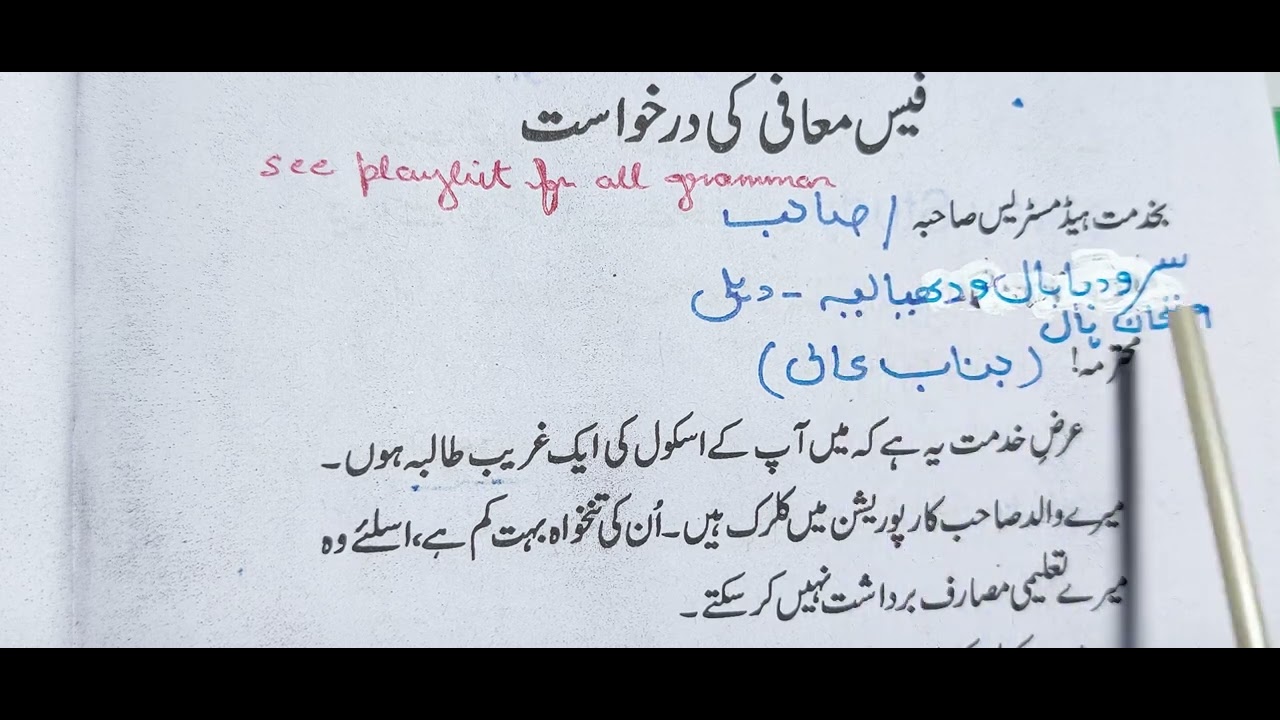 فیس معافی کی درخواست
see playlist for all grammar
بخدمت ہیڈ مسٹریس صاحبہ / صاحب
سرودیا بال ودھیالیہ - دہلی
بال
محترمہ! (جناب عالی)
عرضِ خدمت یہ ہے کہ میں آپ کے اسکول کی ایک غریب طالبہ ہوں۔
میرے والد صاحب کارپوریشن میں کلرک ہیں۔ اُن کی تنخواہ بہت کم ہے، اسلئے وہ
میرے تعلیمی مصارف برداشت نہیں کرسکتے۔